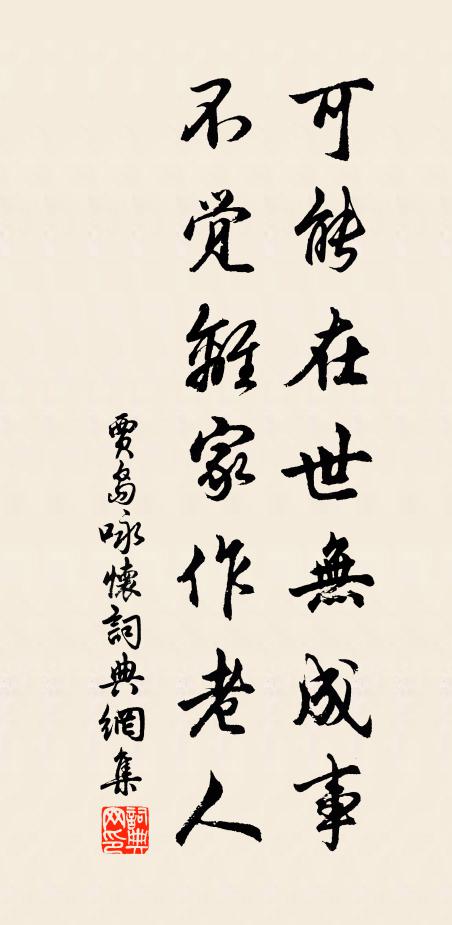 可能在世無成事
不觉離家作老人
賈島咏懷詞典網集
詞典網印